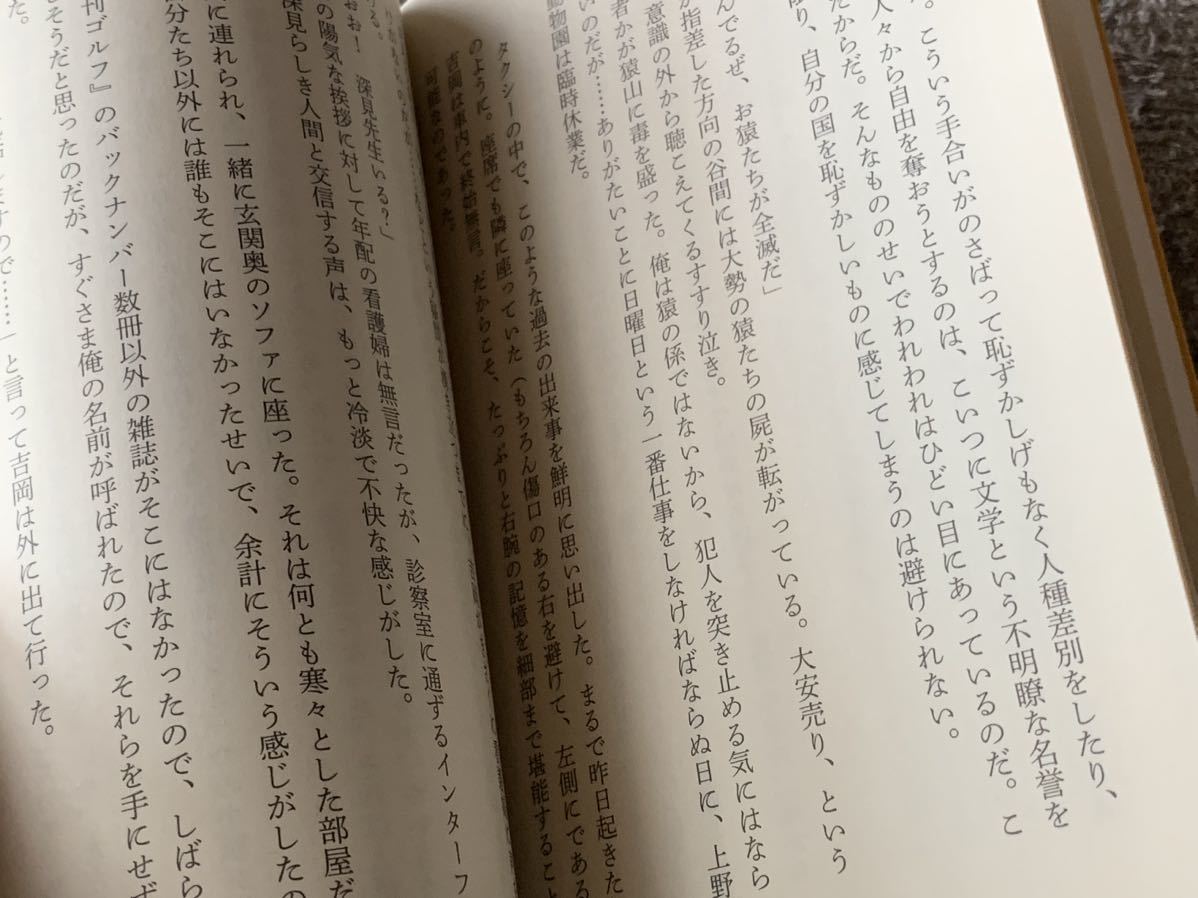 。こういう手合いがのさばって恥ずかしげもなく人種差別をしたり、
人々から自由を奪おうとするのは、こいつに文学という不明瞭な名誉を
たからだ。そんなもののせいでわれわれはひどい目にあっているのだ。こ
限り、自分の国を恥ずかしいものに感じてしまうのは避けられない。
んでるぜ、お猿たちが全滅だ」
が指差した方向の谷間には大勢の猿たちの屍が転がっている。大安売り、という
意識の外から聴こえてくるすすり泣き。
者かが猿山に毒を盛った。俺は猿の係ではないから、犯人を突き止める気にはなら
いのだが……ありがたいことに日曜日という一番仕事をしなければならぬ日に、上野
動物園は臨時休業だ。
タクシーの中で、このような過去の出来事を鮮明に思い出した。まるで昨日起きた
のように。座席でも隣に座っていた（もちろん傷口のある右を避けて、左側にである
吉岡は車内で終始無言。だからこそ、たっぷりと右腕の記憶を細部まで堪能すること
可能なのであった。
ける。
おお！　深見先生いる？」
の陽気な挨拶に対して年配の看護婦は無言だったが、診察室に通ずるインターフ
深見らしき人間と交信する声は、もっと冷淡で不快な感じがした。
に連れられ、一緒に玄関奥のソファに座った。それは何とも寒々とした部屋だ
分たち以外には誰もそこにはいなかったせいで、余計にそういう感じがしたの
刊ゴルフ』のバックナンバー数冊以外の雑誌がそこにはなかったので、しばら
そうだと思ったのだが、すぐさま俺の名前が呼ばれたので、それらを手にせず
た。
ますので……」と言って吉岡は外に出て行った。